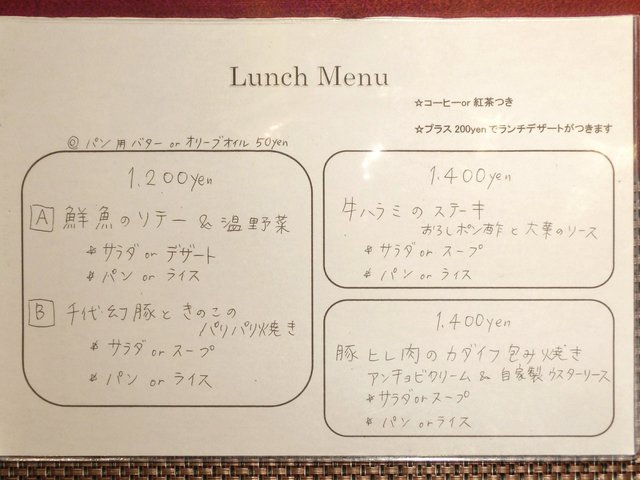 Lunch Menu
☆コーヒーor 紅茶つき
☆プラス 200yen でランチデザートがつきます
◎ パン用バター or オリーブオイル 50yen
1,200yen
A 鮮魚のソテー & 温野菜
* サラダ or デザート
* パン or ライス
B 千代幻豚ときのこの
パリパリ焼き
* サラダ or スープ
* パン or ライス
1,400yen
牛ハラミのステーキ
おろしポン酢と大葉のソース
* サラダ or スープ
* パン or ライス
1,400yen
豚ヒレ肉のカダイフ包み焼き
アンチョビクリーム & 自家製ウスターソース
* サラダ or スープ
* パン or ライス